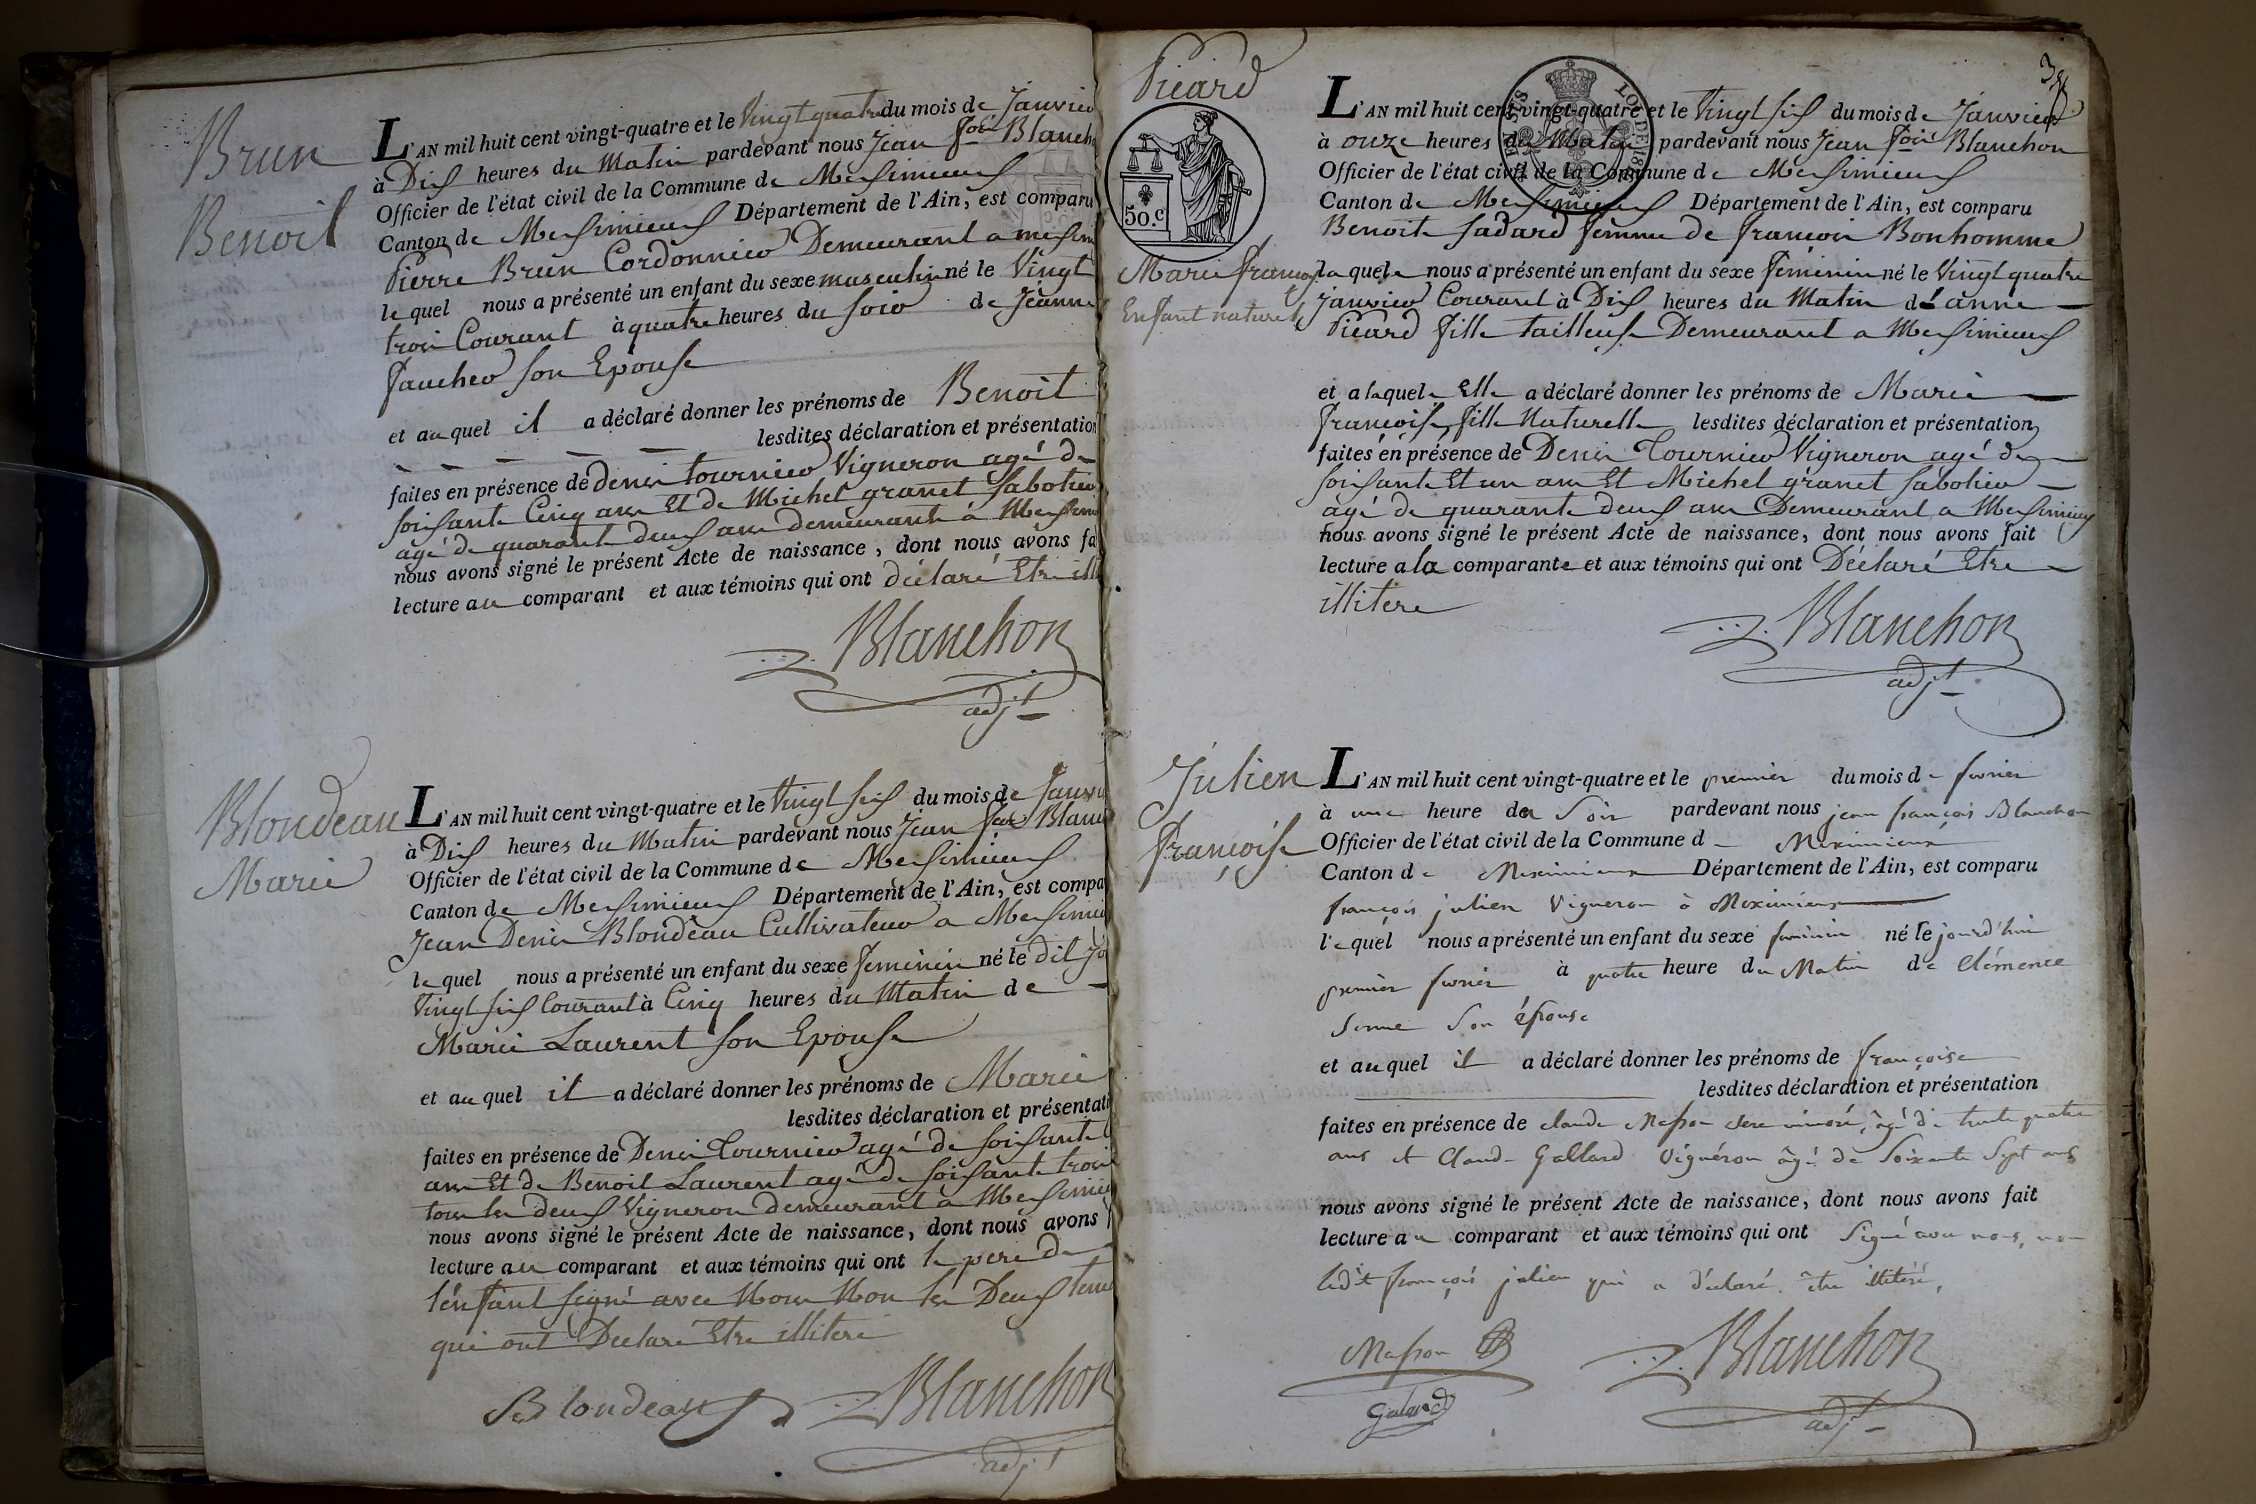 Brun
Benoit
L'AN mil huit cent vingt-quatre et le Vingt quatre du mois de Janvier
à Dix heures du Matin pardevant nous Jean fois Blanch
Officier de l'état civil de la Commune de Meximieux
Canton de Meximieux Département de l'Ain, est comparu
Pierre Brun Cordonnier Demeurant a mexim
le quel nous a présenté un enfant du sexe masculin né le Vingt
trois Courant à quatre heures du soir de Jeanne
faucher son Epouse
et au quel il a déclaré donner les prénoms de Benoit
lesdites déclaration et présentation
faites en présence de denis tournier Vigneron agé de
soixante Cinq ans Et de Michel granet sabotier
agé de quarante deux ans demeurants à Mexim
nous avons signé le présent Acte de naissance, dont nous avons fa
lecture au comparant et aux témoins qui ont déclaré Etre illi
Blanchon
adjt
Blondeau
Marie
L'AN mil huit cent vingt-quatre et le Vingt six du mois de Janvi
à Dix heures du Matin pardevant nous Jean fois Blanc
Officier de l'état civil de la Commune de Meximieux
Canton de Meximieux Département de l'Ain, est compa
Jean Denis Blondeau Cultivateur a Meximi
le quel nous a présenté un enfant du sexe feminin né le dit Jo
Vingt six Courant à Cinq heures du Matin de
Marie Laurent son Epouse
et au quel il a déclaré donner les prénoms de Marie
lesdites déclaration et présentati
faites en présence de Denis Tournier agé de soixante
ans Et de Benoit Laurent agé de soixante trois
tous les deux Vigneron demeurant à Meximi
nous avons signé le présent Acte de naissance, dont nous avons
lecture au comparant et aux témoins qui ont le pere de
l'enfant signé avec Nous Non les Deux tem
qui ont Declaré Etre illiteré
Blondeau Blanchon
adjt
Picard
50.c
Marie françoise
Enfant naturel
L'AN mil huit cent vingt-quatre et le Vingt six du mois de Janvier
à onze heures du Matin pardevant nous Jean fois Blanchon
Officier de l'état civil de la Commune de Meximieux
Canton de Meximieux Département de l'Ain, est comparu
Benoite Sadard femme de françois Bonhomme
la quele nous a présenté un enfant du sexe féminin né le Vingt quatre
Janvier Courant à Dix heures du Matin de anne
Picard fille tailleuse Demeurant a Meximieux
et a laquele Elle a déclaré donner les prénoms de Marie
françoise fille Naturelle lesdites déclaration et présentation
faites en présence de Denis Tournier Vigneron agé de
soixante Et un ans Et Michel granet sabotier
agé de quarante deux ans Demeurant a Meximieux
nous avons signé le présent Acte de naissance, dont nous avons fait
lecture a la comparante et aux témoins qui ont Déclaré Etre
illitere
Blanchon
adjt
Julien
Françoise
L'AN mil huit cent vingt-quatre et le premier du mois de fevrier
à une heure du Soir pardevant nous jean françois Blanchon
Officier de l'état civil de la Commune d Meximieux
Canton de Meximieux Département de l'Ain, est comparu
françois julien Vigneron à Meximieux
le quel nous a présenté un enfant du sexe feminin né le jourd'hui
premier fevrier à quatre heure du Matin de Clémence
son épouse
et au quel il a déclaré donner les prénoms de françoise
lesdites déclaration et présentation
faites en présence de claude Masson agé de trente quatre
ans et Claude Galland Vigneron âgé de Soixante Sept ans
nous avons signé le présent Acte de naissance, dont nous avons fait
lecture au comparant et aux témoins qui ont Signé avec nous, non
ledit françois julien qui a déclaré être illitéré,
Masson Blanchon
Galand adjt